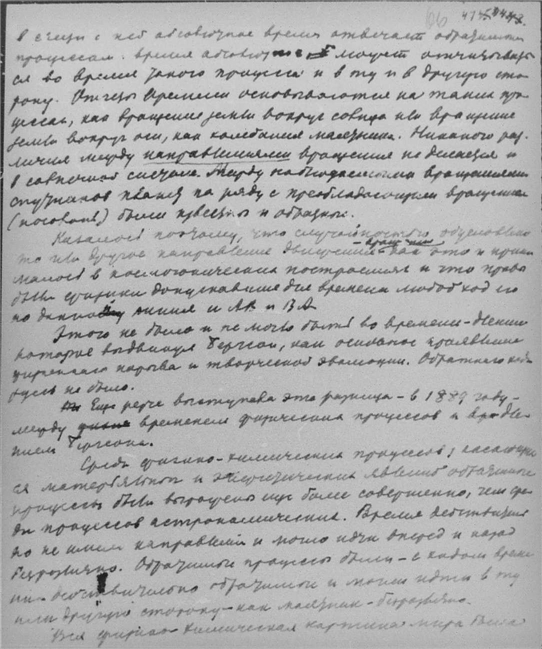 в связи с ней абсолютное время отвечает обратимым
процессам. Время абсолютное может отсчитывать
ся во время такого процесса и в ту и в другую сто
рону. Отсчеты времени основываются на таких про
цессах, как вращение земли вокруг солнца или вращение
земли вокруг оси, как колебания маятника. Никакого раз
личия между направлениями вращения не делается и
в солнечной системе. Между наблюдаемыми вращениями
спутников планет на ряду с преобладающим вращением
были известны и обратные.
Казалось поэтому, что случайностью обусловлено
то или другое направление движения - вращения как это и прини
малось в космогонических построениях и что правы
были физики допускавшие для времени любой ход его
по данной линии и АВ и ВА
Этого не было и не могло быть во времени-длении
которое выдвинул Бергсон, как основное проявление
жизненного порыва и творческой эволюции. Обратного
не было.
Еще резче выступала эта разница - в 1889 году -
между временем физических процессов и
Бергсона.
Среди физико-химических процессов, касающих
ся материальных и энергетических явлений обратимые
процессы были выражены еще более совершенно, чем сре
ди процессов астрономических. Время действитель
но не имело направления и могло идти вперед и назад
безразлично. Обратимые процессы были - с ходом време
ни - действительно обратимы и могли идти в ту
или другую сторону - как маятник - безразлично.
Вся физико-химическая картина мира была